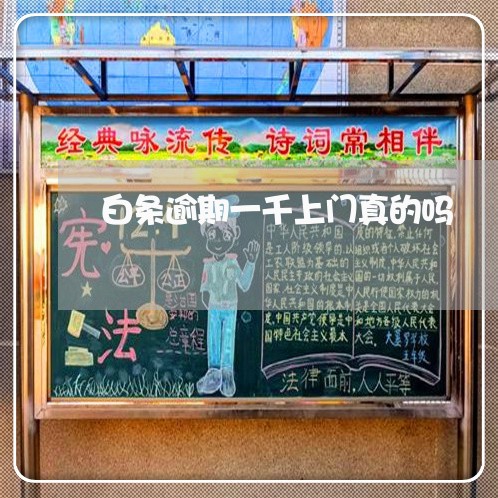 经典咏流传 诗词常相伴
白条逾期一千上门真的吗
宪法
公平
公正
总章程
中华人民共和国
是工人阶级领导的,以
工农联盟为基础的
人民民主专政的社会主义
国家,社会主义制度是中
华人民共和国的根本制
度,中国共产党领导是中
国特色社会主义最本
质的特征,禁止任何
组织或者个人破坏社会
主义制度,中华人民共和
国的一切权利属于人民,
人民行使国家权力的机
关是全国人民代表大会
和地方各级人民代表
大会。
五年级
法律面前,人人平等